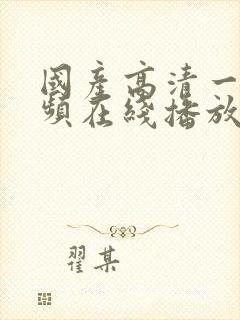 國產高清一
頻在綫播放
翟某